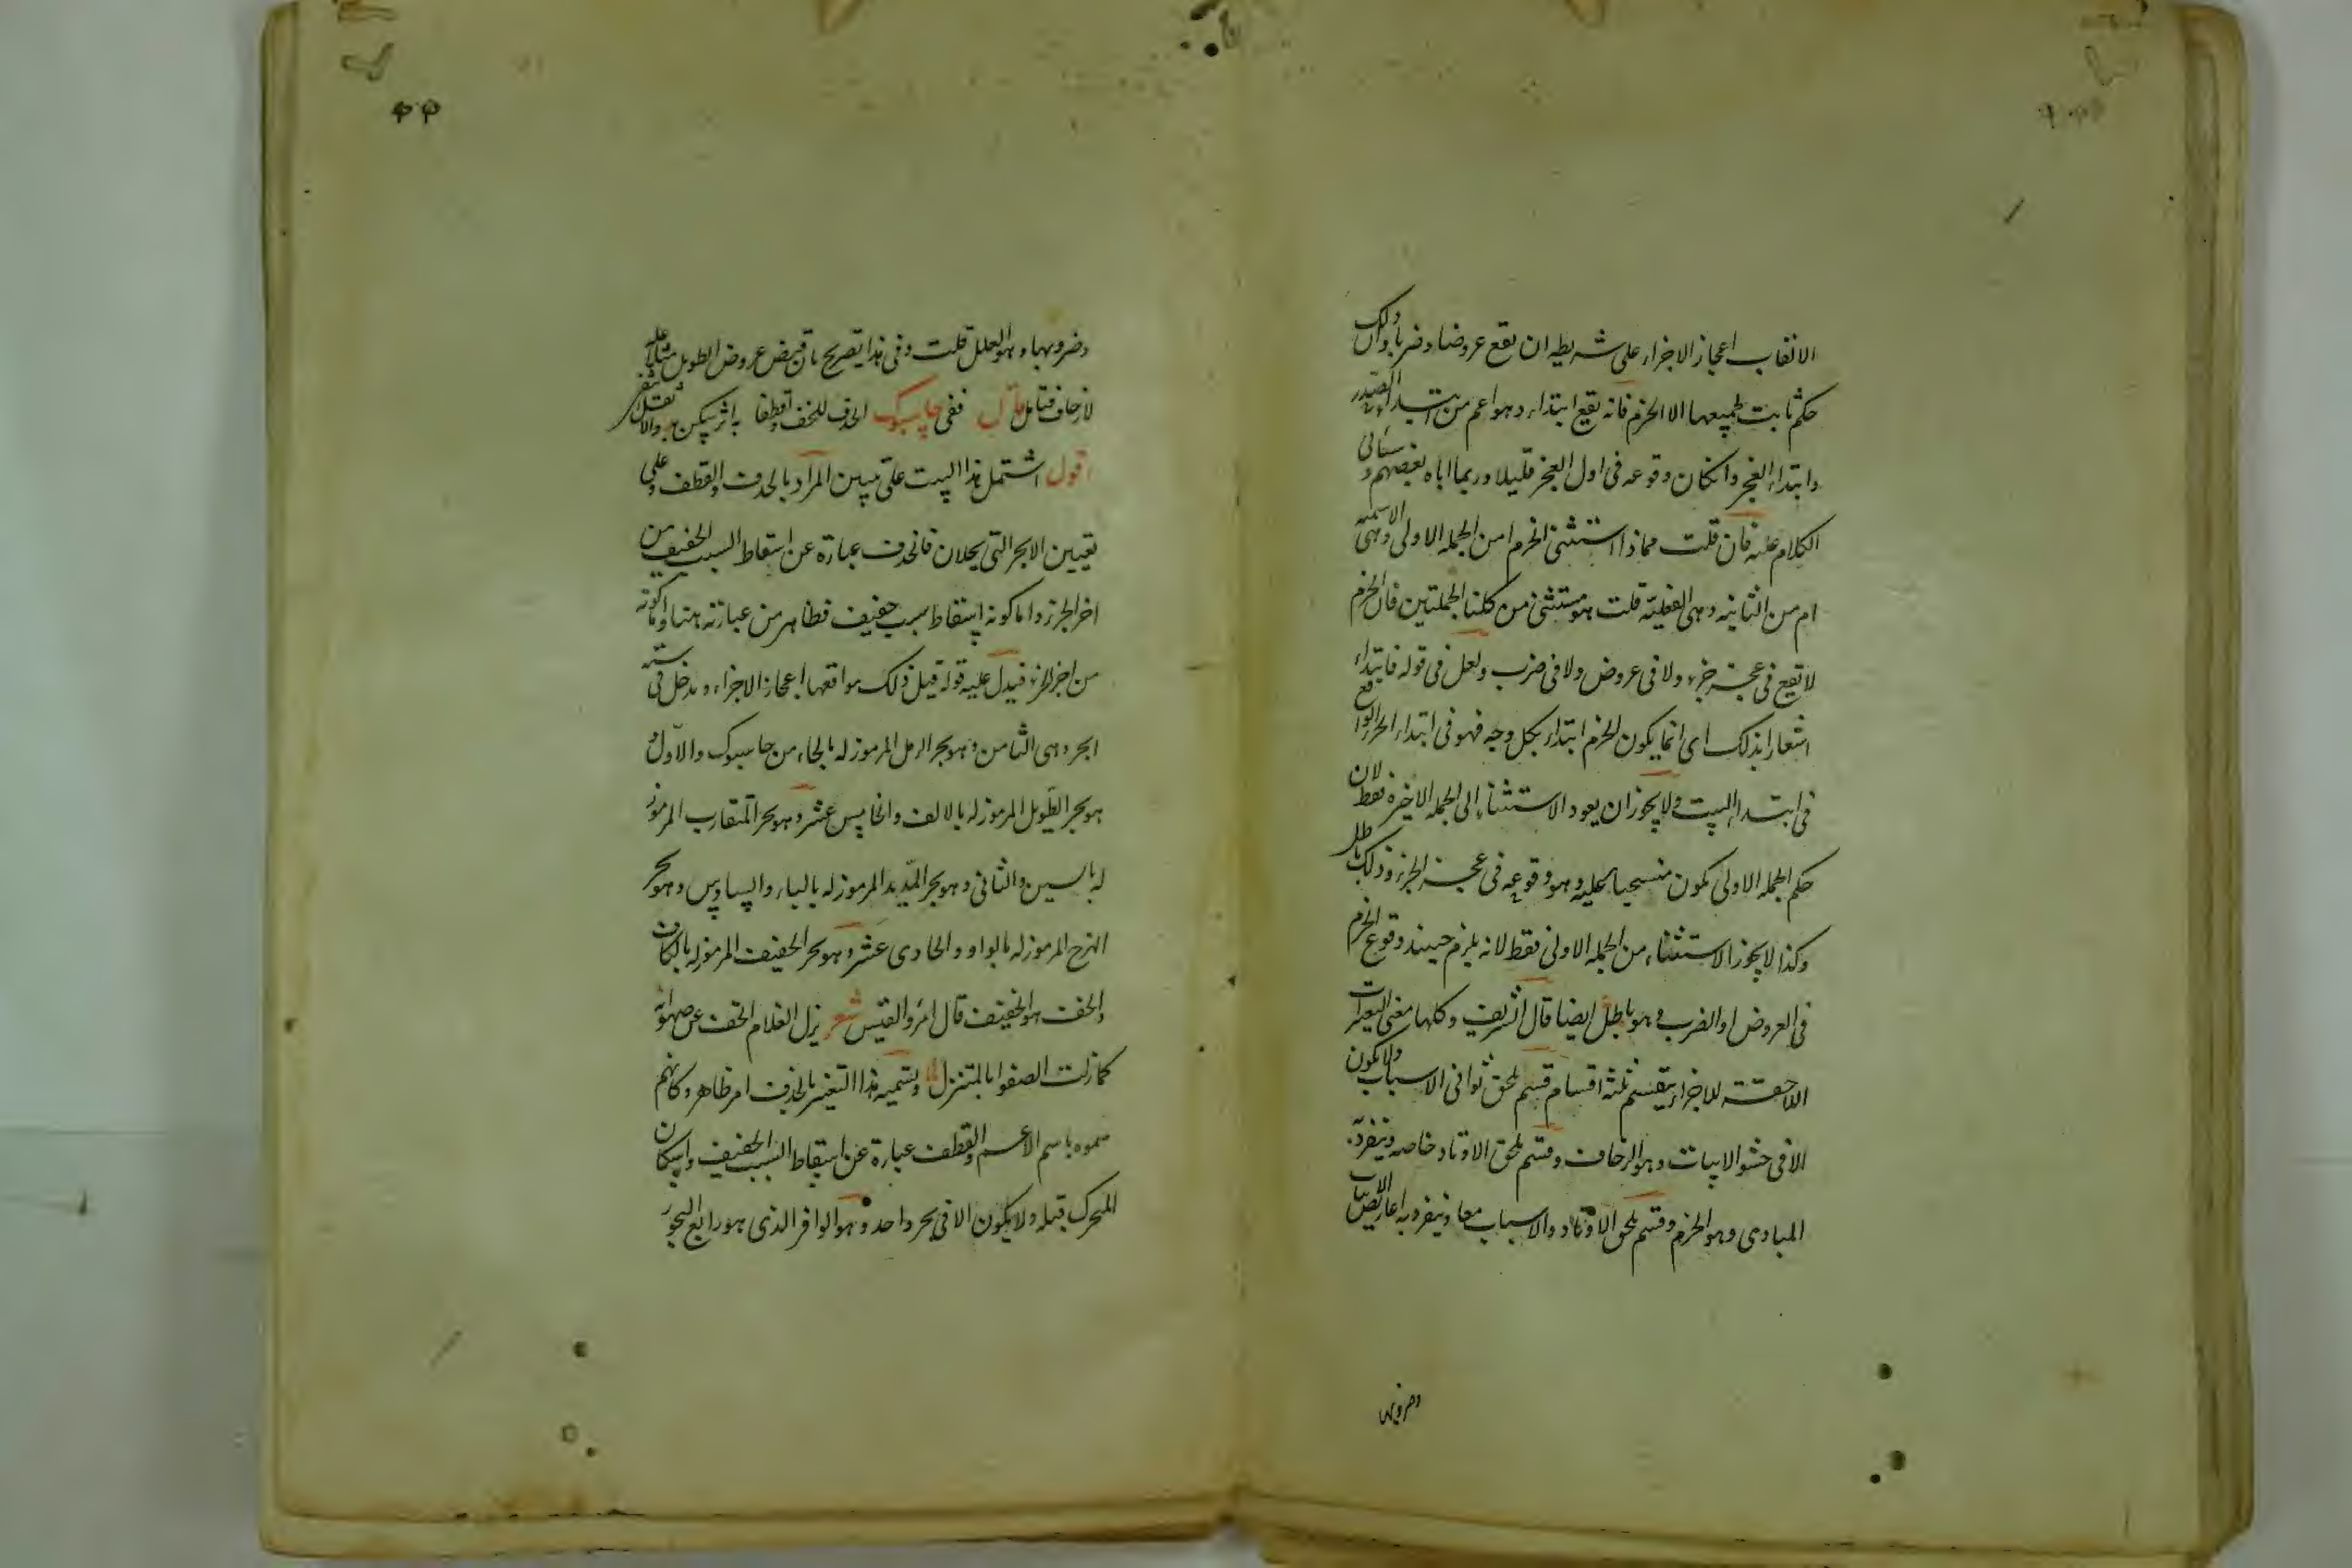 الالقاب اعجاز الاجزاء على شريطه ان تقع عروضا وضربا وان ذلك
حكم ثابت لجميعها الا الخرم فانه يقع ابتداء وهو اعم من ابتداء الصدر
وابتداء العجز وانكان وقوعه فى اول العجز قليلا وربما اباه بعضهم وسياتى
الكلام عليه فان قلت مماذا استثنى الخرم امن الجمله الاولى وهى الاسميه
ام من الثانيه وهى الفعلية قلت هو مستثنى من كلتا الجملتين فان الخرم
لا تقع فى عجز جزء ولا فى عروض ولا فى ضرب ولعل فى قوله فابتداء
اشعارا بذلك اى انما يكون الخرم ابتداء بكل وجه فهو فى ابتداء الجزء الواقع
فى ابتداء البيت ولا يجوز ان يعود الاستثناء الى الجمله الاخيره فقط لان
حكم الجمله الاولى يكون منسحبا عليه وهو وقوعه فى عجز الجزء وذلك باطل
وكذا لا يجوز الاستثناء من الجمله الاولى فقط لانه يلزم حينئذ وقوع الخرم
فى العروض او الضرب وهو باطل ايضا قال الشريف وكلها معنى التغييرات
اللاحقة للاجزاء ينقسم ثلثة اقسام قسم يلحق ثوانى الاسباب ولا يكون
الا فى حشو الابيات وهو الزحاف وقسم يلحق الاوتاد خاصه وينفرد به
المبادى وهو الخرم وقسم يلحق الاوتاد والاسباب معا وينفرد به اعاريض الابيات
وضروبها
٤٤
وضروبها وهو العلل قلت وفى هذا تصريح بان قبض عروض الطويل مثلا عله
لا زحاف فتامل قال ففى حاسبوك الحذف للخف وقطفا به اثر سكن والا
اقول اشتمل هذا البيت على تبيين المراد بالحذف والقطف وعلى
تعيين الابحر التى يحلان فالحذف عبارة عن اسقاط السبب الخفيف من
اخر الجزء واما كونه اسقاط سبب خفيف فظاهر من عبارته هنا واما كونه
من اخر الجزء فيدل عليه قوله قبل ذلك مواقعها اعجاز الاجزاء ويدخل فى ستة
ابحر وهى الثامن وهو بحر الرمل المرموز له بالحاء من حاسبوك والاول و
هو بحر الطويل المرموز له بالالف والخامس عشر وهو بحر المتقارب المرموز
له بالسين والثانى وهو بحر المديد المرموز له بالباء والسادس وهو بحر
الهزج المرموز له بالواو والحادى عشر وهو بحر الخفيف المرموز له بالكاف
والخف هو الخفيف قال امرؤ القيس شعر يزل الغلام الخف عن صهواته
كما زلت الصفواء بالمتنزل وتسميه هذا التغيير بالحذف امر ظاهر وكانهم
سموه باسم الاعم والقطف عبارة عن اسقاط السبب الخفيف واسكان
المتحرك قبله ولا يكون الا فى بحر واحد وهو الوافر الذى هو رابع البحور